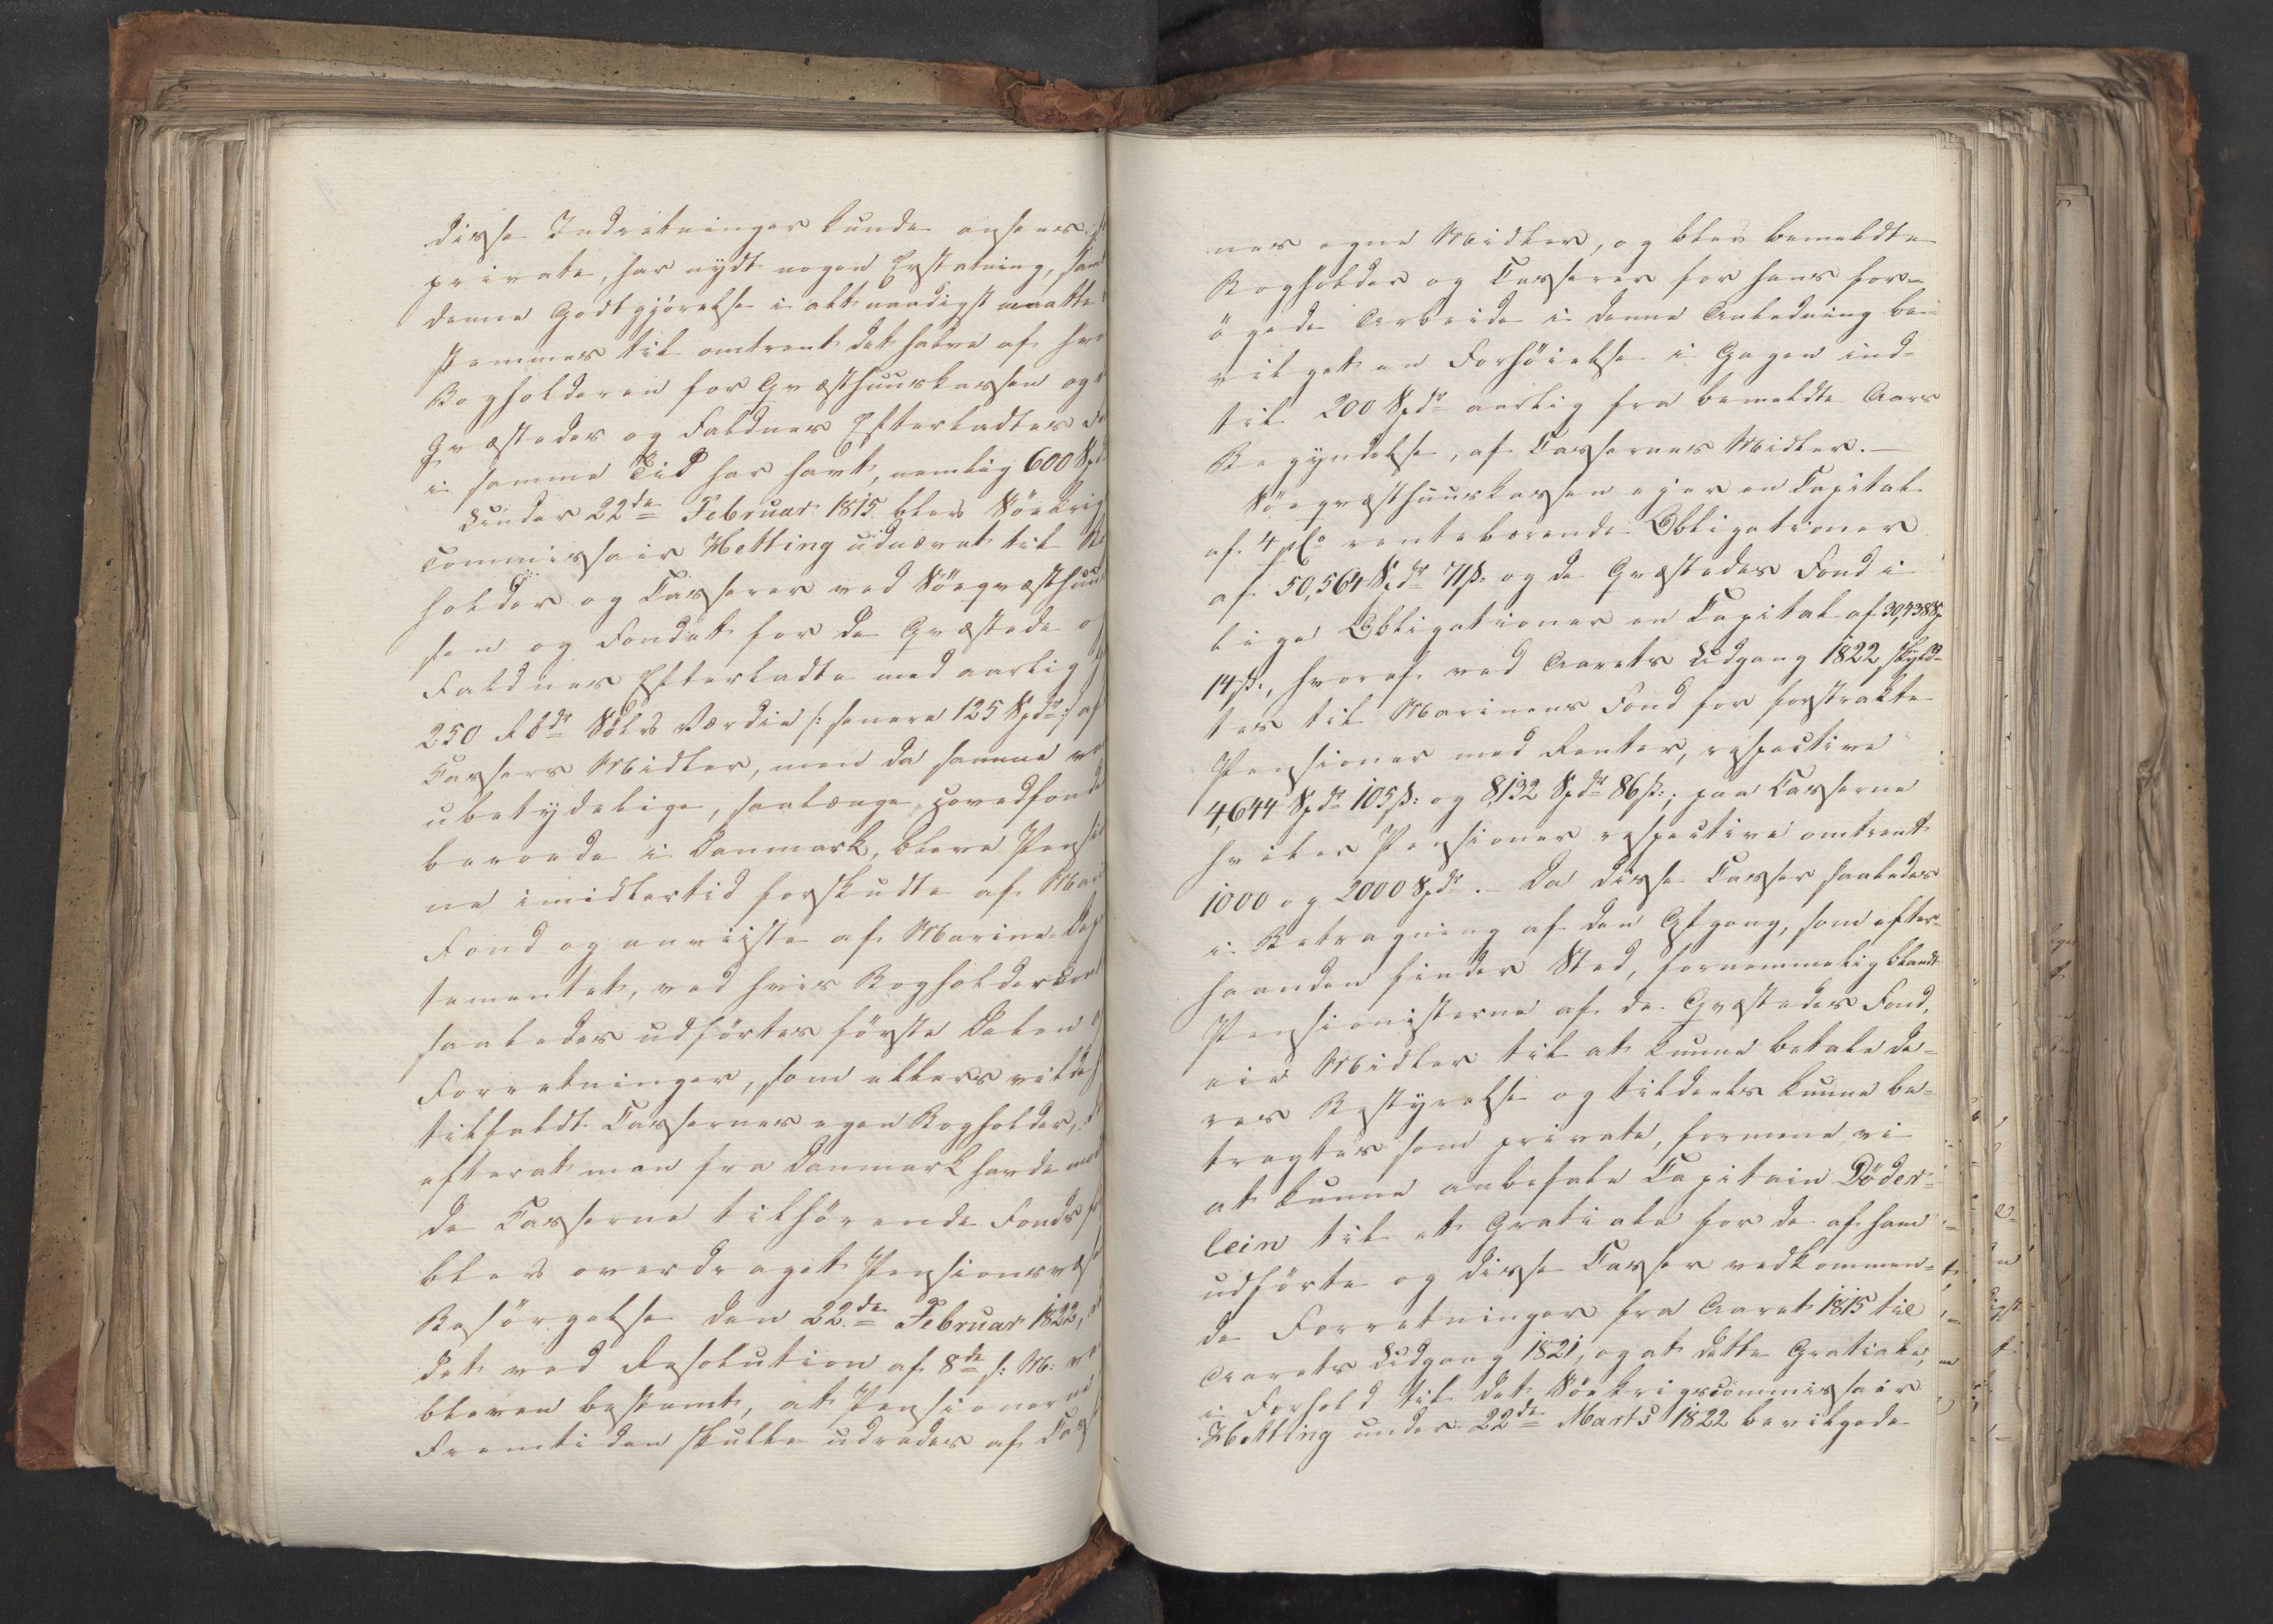 disse Indretninger kunde ansees
private, har nydt nogen Erstatning, samt
denne Godtgjörelse i alt naadigst maatte
stemmes til omtrent det halve af hva
Bogholderen for Qvæsthuuskassen og
Qvæstedes og Faldnes Efterladtes Fo
i samme Tid har havt, nemlig 600 Spd
Under 22de Februar 1815 blev Söekrigs
commissair Hetting udnævnt til Bo
holder og Casserer ved Söeqvæsthuus
sen og Fondet for de Qvæstede o
Faldnes Efterladte med aarlig
250 Rbdr Sölv Værdie /: senere 125 Spdr :/ af
Cassers Midler, men da samme va
ubetydelige, saalænge Hovedfonde
beroede i Danmark, bleve Pensio
ne imidlertid forskudte af Mari
Fond og anviiste af Marine-Dep
tementet, ved hvis Bogholdercont
saaledes udförtes förste Delen
Forretninger, som ellers vilde
tilfaldt Cassernes egen Bogholder,
efterat man fra Danmark havde mod
de Casserne tilhörende Fonds
blev overdraget Pensionsvæs
Besörgelse den 22de Februar 1822,
det ved Resolution af 8de s: M: va
bleven bestemt, at Pensionerne
Fremtiden skulle udredes af Cass
nes egne Midler, og blev bemeldte
Bogholder og Casserer for hans for-
ögede Arbeide i denne Anledning be-
vilget en Forhöielse i Gagen ind-
til 200 Spdr aarlig fra bemeldte Aars
Begyndelse, af Cassernes Midler.
Söeqvæsthuuskassen ejer en Capital
af 4 pCo rentebærende Obligationer
af 50,564 Spdr 71 ß: og de Qvæstedes Fond i
lige Obligationer en Capital af 30,438 Sp
14 ß:, hvoraf ved Aarets Udgang 1822 skyld-
tes til Marinens Fond for forstrakte
Pensioner med Renter, respective
4,644 Spdr 105 ß: og 8,132 Spdr 86 ß:; paa Casserne
hviler Pensioner respective omtrent
1000 og 2000 Spdr. Da disse Casser saaledes
i Betragtning af den Afgang, som efter-
haanden finder Sted, fornemmelig blandt
Pensionisterne af de Qvæstedes Fond,
eie Midler til at kunne betale de-
res Bestyrelse og tildeels kunne be-
tragtes som private, formene vi
at kunne anbefale Capitain Döder-
lein til et Gratiale for de af ham
udförte og disse Casser vedkommen-
de Forretninger fra Aaret 1815 til
Aarets Udgang 1821, og at dette Gratiale,
i Forhold til det Söekrigscommissair
Hetting under 22de Marts 1822 bevilgede